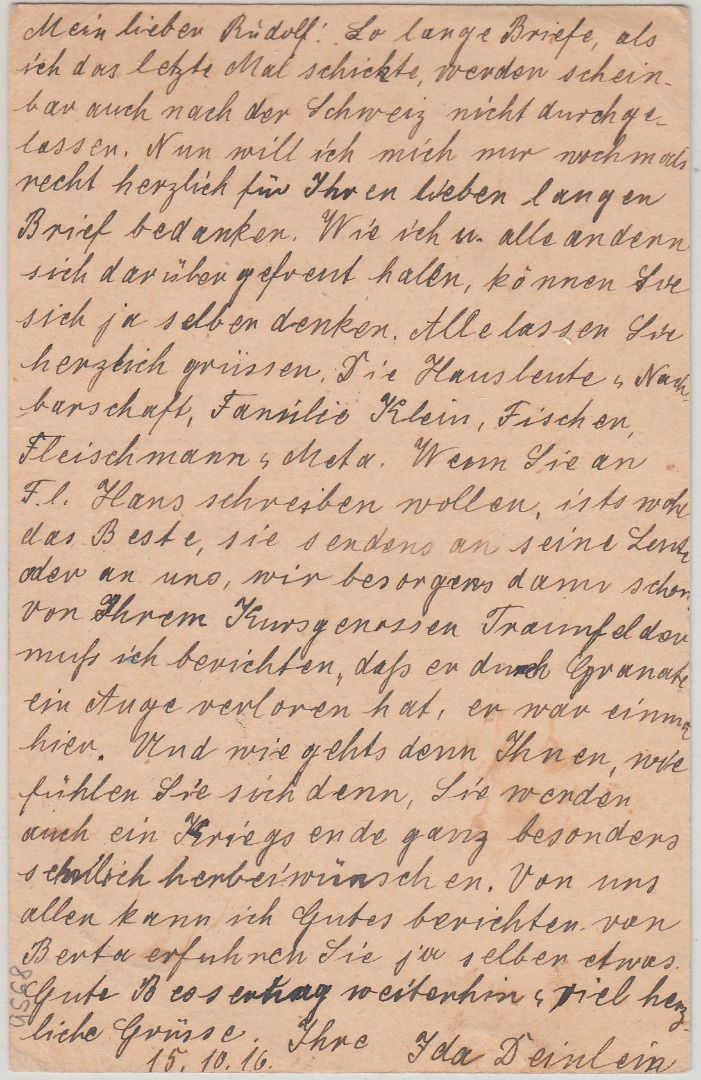 Mein lieber Rudolf! So lange Briefe, als
ich das letzte Mal schickte, werden schein-
bar auch nach der Schweiz nicht durchge-
lassen. Nun will ich mich nur nochmals
recht herzlich für Ihren lieben langen
Brief bedanken. Wie ich u. alle andern
sich darüber gefreut haben, können Sie
sich ja selber denken. Alle lassen Sie
herzlich grüssen. Die Hausleute u Nach-
barschaft, Familie Klein, Fischer,
Fleischmann u Meta. Wenn Sie an
F.l. Hans schreiben wollen, ists wohl
das Beste, sie sendens an seine Leute
oder an uns, wir besorgens dann schon.
Von Ihrem Kursgenossen Traunfelder
muß ich berichten, daß er durch Granate
ein Auge verloren hat, er war einmal
hier. Und wie gehts denn Ihnen, wie
fühlen Sie sich denn, Sie werden
auch ein Kriegsende ganz besonders
sehnlich herbeiwünschen. Von uns
allen kann ich Gutes berichten. von
Berta erfuhren Sie ja selber etwas.
Gute Besserung weiterhin u viel herz-
liche Grüsse. Ihre Ida Deinlein
15.10.16.
9568